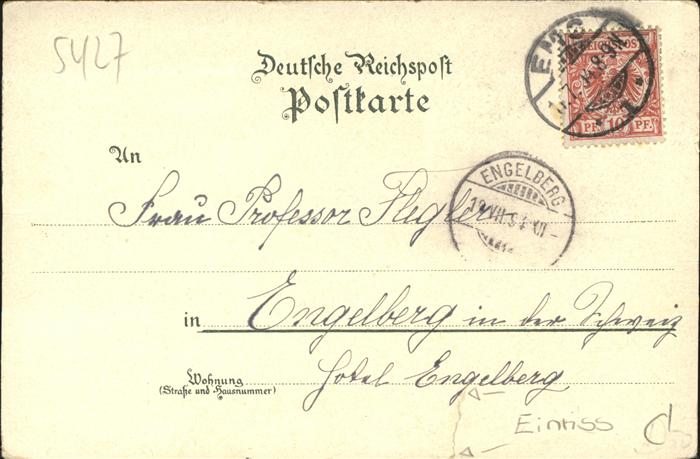 5427
EMS
REICHSPOST
PF. 10 PF.
Deutsche Reichspost
Postkarte
An
ENGELBERG
Frau Professor Flegler
in Engelberg in der Schweiz
Wohnung
(Straße und Hausnummer)
Hotel Engelberg
Einriss